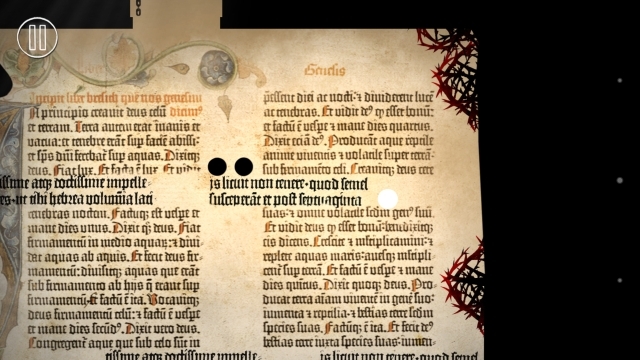 Genesis
Incipit liber bresith quē nos genesim
In principio creavit deus celū
et terram. Terra autem erat inanis et
vacua: et tenebre erāt sup faciē abissi:
et sp̄s dn̄i ferebat̄ sup aquas. Dixitq;
deus. Fiat lux. Et facta ē lux. Et vidit
issime atq; doctissime impelle
es-ut tibi hebrea volumīa lati
tenebras noctem. Factūq; est vespe et
mane dies unus. Dixit q; deus. Fiat
firmamentū in medio aquar̄: et divi
dat aquas ab aquis. Et fecit deus fir-
mamentū: divisitq; aquas que erāt
sub firmamento ab hijs q̄ erant sup
firmamentū: et factū ē ita. Vocavitq;
deus firmamentū celū: et factū ē vespe
et mane dies secūd9. Dixit vero deus.
Congregent̄ aque que sub celo sūt
p̄essent diei ac nocti: et dividerent lucē
ac tenebras. Et vidit d9 q esset bonū:
et factū ē vespe et mane dies quartus.
Dixit eciā d9. Producāt aque reptile
anime viventis et volatile super terrā:
sub firmamēto celi.
is licuit non tenere-quod semel
susceperāt et post septuaginta
suas: et omne volatile scdm gen9 suū.
Et vidit deus q esset bonū: benedixitq;
eis dicens. Crescite et multiplicamini: et
replete aquas maris: avesq; multipli
cent̄ sup terrā. Et factū ē vespe et mane
dies quintus. Dixit quoq; deus. Pro-
ducat terra aīam viventē in gene suo:
iumenta et reptilia: et bestias terre scdm
species suas. Factūq; ē ita. Et fecit d9
bestias terre iuxta species suas: iumen-
issime atq; doctissime impelle
is licuit non tenere-quod semel